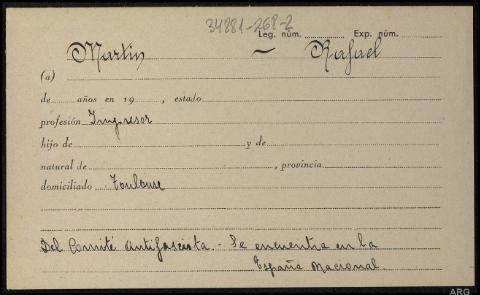 34881-268-2
Leg. núm. Exp. núm.
Martin ~ Rafael
(a)
de años en 19 , estado
profesión Impresor
hijo de y de
natural de , provincia
domiciliado Toulouse
Del Comité antifascista.- Se encuentra en la
España Nacional.
ARG